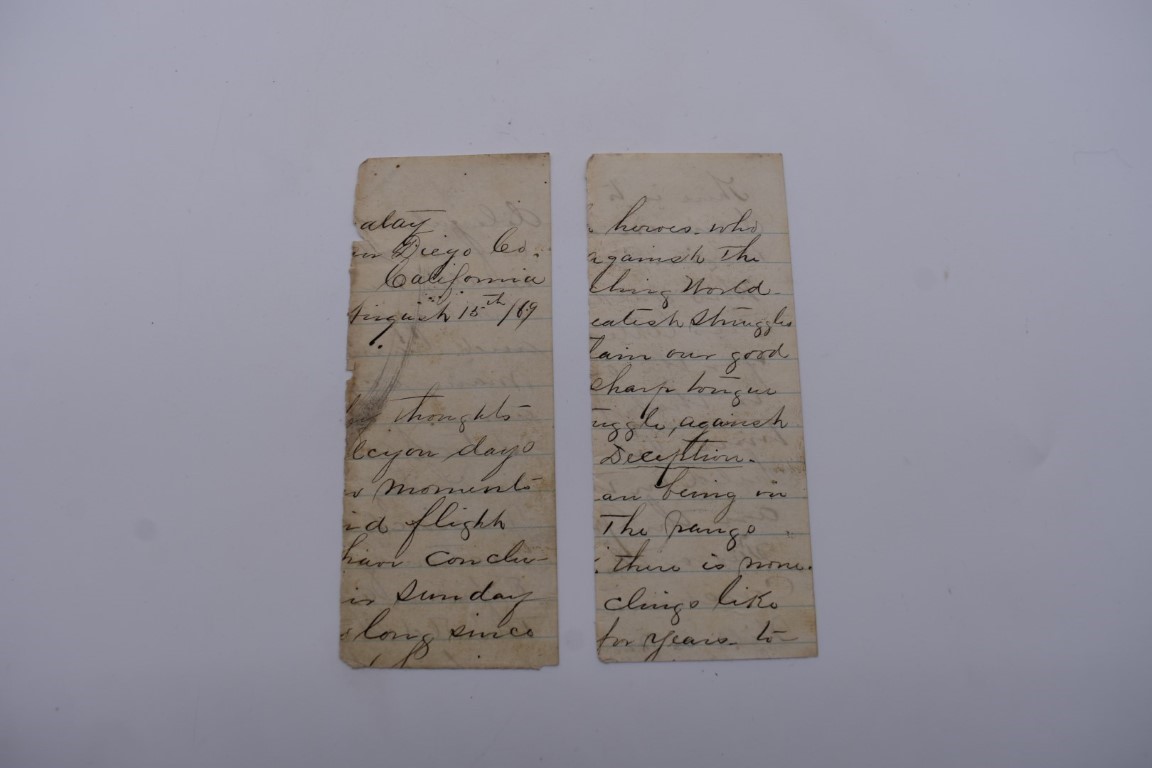 alay
an Diego Co.
California
August 15th /69
thoughts
lcyon days
moments
id flight
have conclu-
is Sunday
long since
heroes who
against the
ching World
eatest struggle
tain our good
sharp tongue
uggle, against
Deception.
an being in
The pangs
there is none.
clings like
for years to